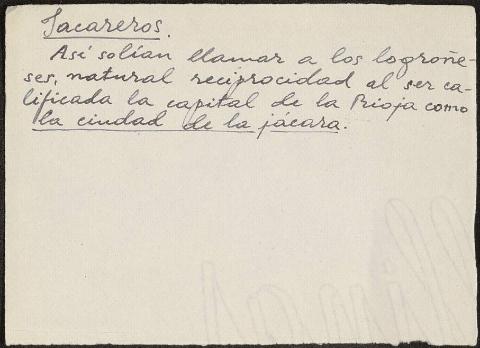 Jacareros.
Así solían llamar a los logroñe-
ses, natural reciprocidad al ser ca-
lificada la capital de la Rioja como
la ciudad de la jácara.